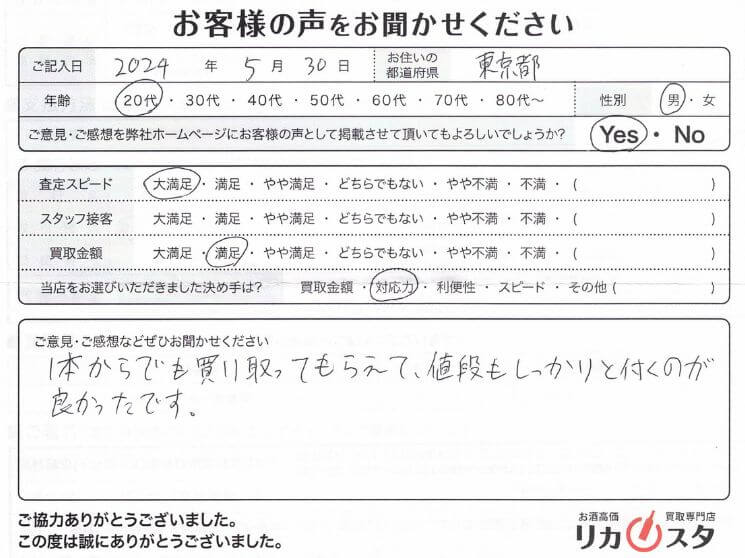 お客様の声をお聞かせください
ご記入日 2024 年 5 月 30 日 お住いの都道府県 東京都
年齢 20代・30代・40代・50代・60代・70代・80代～ 性別 男・女
ご意見・ご感想を弊社ホームページにお客様の声として掲載させて頂いてもよろしいでしょうか? Yes・No
査定スピード 大満足・満足・やや満足・どちらでもない・やや不満・不満・( )
スタッフ接客 大満足・満足・やや満足・どちらでもない・やや不満・不満・( )
買取金額 大満足・満足・やや満足・どちらでもない・やや不満・不満・( )
当店をお選びいただきました決め手は? 買取金額・対応力・利便性・スピード・その他( )
ご意見・ご感想などぜひお聞かせください
1本からでも買い取ってもらえて、値段もしっかりと付くのが
良かったです。
ご協力ありがとうございました。
この度は誠にありがとうございました。
お酒高価 買取専門店
リカスタ